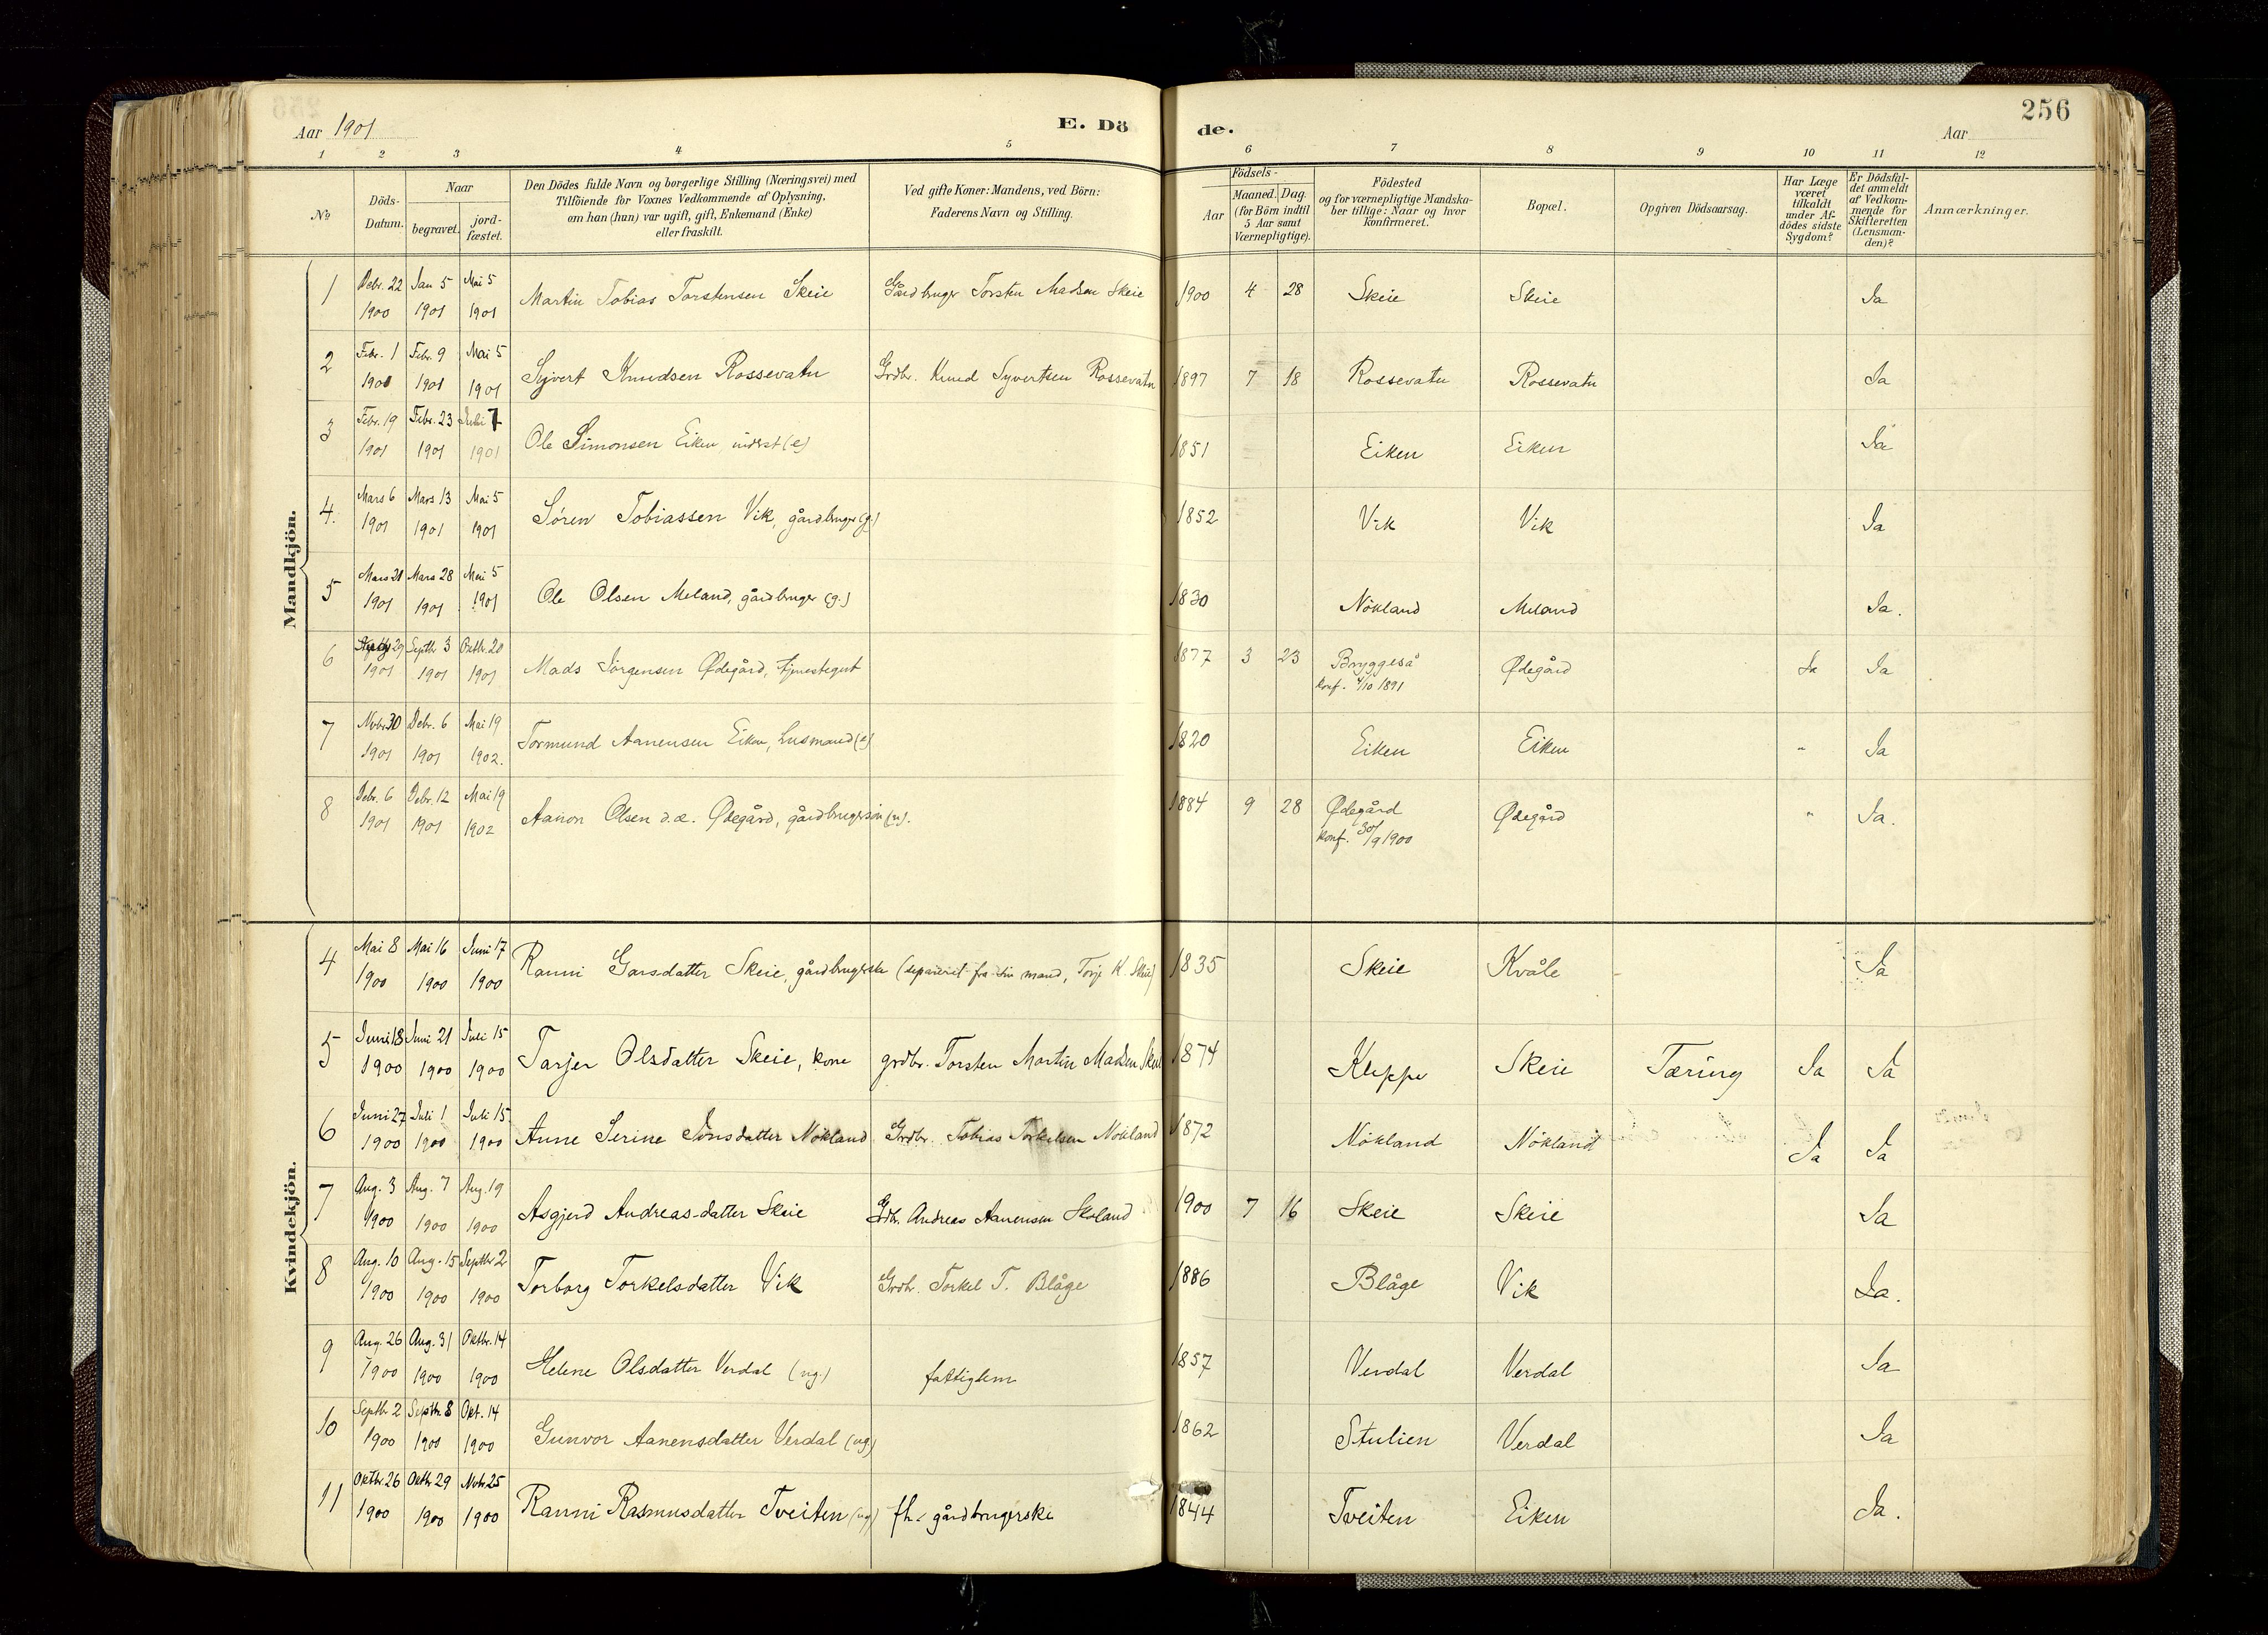 256
Aar 1901
E. Dö
de.
Aar
1 2 3 4 5 6 7 8 9 10 11 12
No
Döds-Datum.
Naar
begravet.
jord-fæstet.
Den Dödes fulde Navn og borgerlige Stilling (Næringsvei) med
Tilföiende for Voxnes Vedkommende af Oplysning,
om han (hun) var ugift, gift, Enkemand (Enke)
eller fraskilt.
Ved gifte Koner: Mandens, ved Börn:
Faderens Navn og Stilling.
Födsels-
Aar
Maaned. Dag.
(for Börn indtil
5 Aar samt
Værnepligtige).
Födested
og for værnepligtige Mandska-
ber tillige: Naar og hvor
konfirmeret.
Bopæl.
Opgiven Dödsaarsag.
Har Læge
været
tilkaldt
under Af-
dödes sidste
Sygdom?
Er Dödsfal-
det anmeldt
af Vedkom-
mende for
Skifteretten
(Lensman-
den)?
Anmærkninger.
Mandkjön.
1 Debr. 22 1900 Jan 5 1901 Mai 5 1901 Martin Tobias Torstensen Skeie Gårdbruger Torsten Madsen Skeie 1900 4 28 Skeie Skeie Ja
2 Febr. 1 1901 Febr. 9 1901 Mai 5 1901 Syvert Knudsen Rossevatn Grdbr. Knud Syvertsen Rossevatn 1897 7 18 Rossevatn Rossevatn Ja
3 Febr. 19 1901 Febr. 23 1901 Juli 7 1901 Ole Simonsen Eiken, inderst (e) 1851 Eiken Eiken Ja
4. Mars 6 1901 Mars 13 1901 Mai 5 1901 Sören Tobiassen Vik, gårdbruger (g.) 1852 Vik Vik Ja
5 Mars 21 1901 Mars 28 1901 Mai 5 1901 Ole Olsen Meland, gårdbruger (g.) 1830 Nökland Meland Ja.
6 29 1901 Septbr 3 1901 Oktbr. 20 1901 Mads Jörgensen Ødegård, tjenestegut 1877 3 23 Bryggeså konf. 4/10 1891 Ødegård Ja Ja
7 Novbr 30 1901 Debr. 6 1901 Mai 19 1902. Tormund Aanensen Eiken, husmand (e) 1820 Eiken Eiken " Ja
8 Debr. 6 1901 Debr. 12 1901 Mai 19 1902 Aanon Olsen d.æ. Ødegård, gårdbrugersön (u). 1884 9 28 Ødegård konf. 30/9 1900 Ødegård " Ja.
Kvindekjön.
4 Mai 8 1900 Mai 16 1900 Juni 17 1900 Ranni Garsdatter Skeie, gårdbrugerske (separeret fra sin mand, Torje K. Skeie) 1835 Skeie Kvåle Ja
5 Juni 18 1900 Juni 21 1900 Juli 15 1900 Tarjer Olsdatter Skeie, kone grdbr. Torsten Martin Madsen Skeie 1874 Kleppe Skeie Tæring Ja Ja
6 Juni 27 1900 Juli 1 1900 Juli 15 1900 Anne Serine Jonsdatter Nökland Grdbr. Tobias Torkelsen Nökland 1872 Nökland Nökland Ja Ja
7 Aug. 3 1900 Aug. 7 1900 Aug. 19 1900 Asgjerd Andreas-datter Skeie Grdbr. Andreas Aanensen Skeland 1900 7 16 Skeie Skeie Ja
8 Aug. 10 1900 Aug. 15 1900 Septbr 2 1900 Torborg Torkelsdatter Vik Grdbr. Torkel T. Blåge 1886 Blåge Vik Ja.
9 Aug. 26 1900 Aug. 31 1900 Oktbr. 14 1900 Helene Olsdatter Verdal (ug.) fattiglem 1857 Verdal Verdal Ja
10 Septbr 2 1900 Septbr. 8 1900 Okt. 14 1900 Gunvor Aanensdatter Verdal (ug) 1862 Stulien Verdal Ja
11 Oktbr. 26 1900 Oktbr 29 1900 Novbr. 25 1900 Ranni Rasmusdatter Tveiten (ug) fh. gårdbrugerske 1844 Tveiten Eiken Ja.